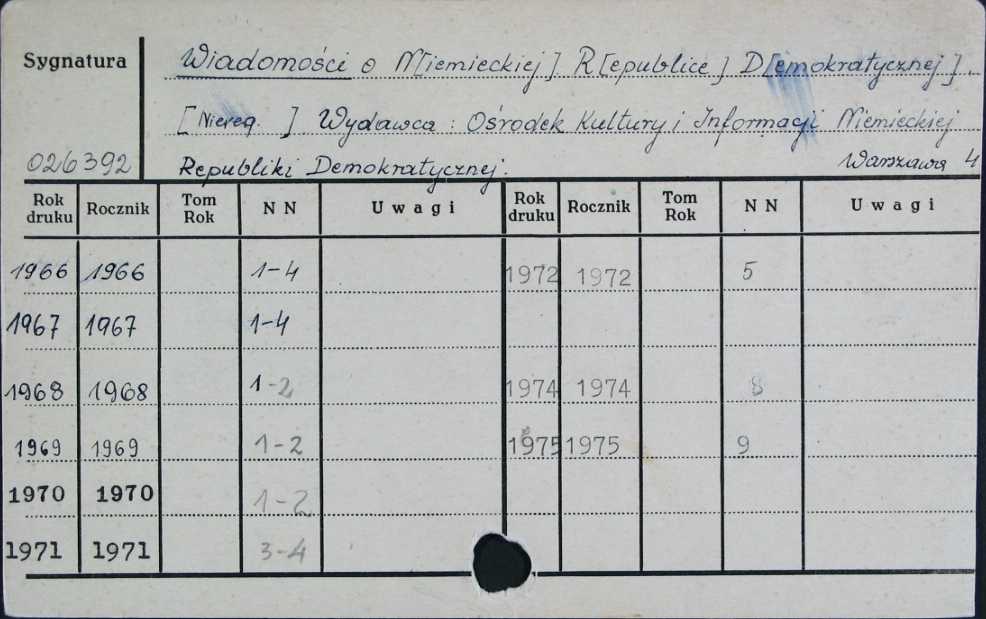 Sygnatura Wiadomości o N[iemieckiej] R[epublice] D[emokratycznej].
[Niereg.] Wydawca: Ośrodek Kultury i Informacji Niemieckiej
026392 Republiki Demokratycznej. Warszawa 4
Rok druku Rocznik Tom Rok N N Uwagi Rok druku Rocznik Tom Rok N N Uwagi
1966 1966 1-4 1972 1972 5
1967 1967 1-4
1968 1968 1-2 1974 1974 8
1969 1969 1-2 1975 1975 9
1970 1970 1-2
1971 1971 3-4